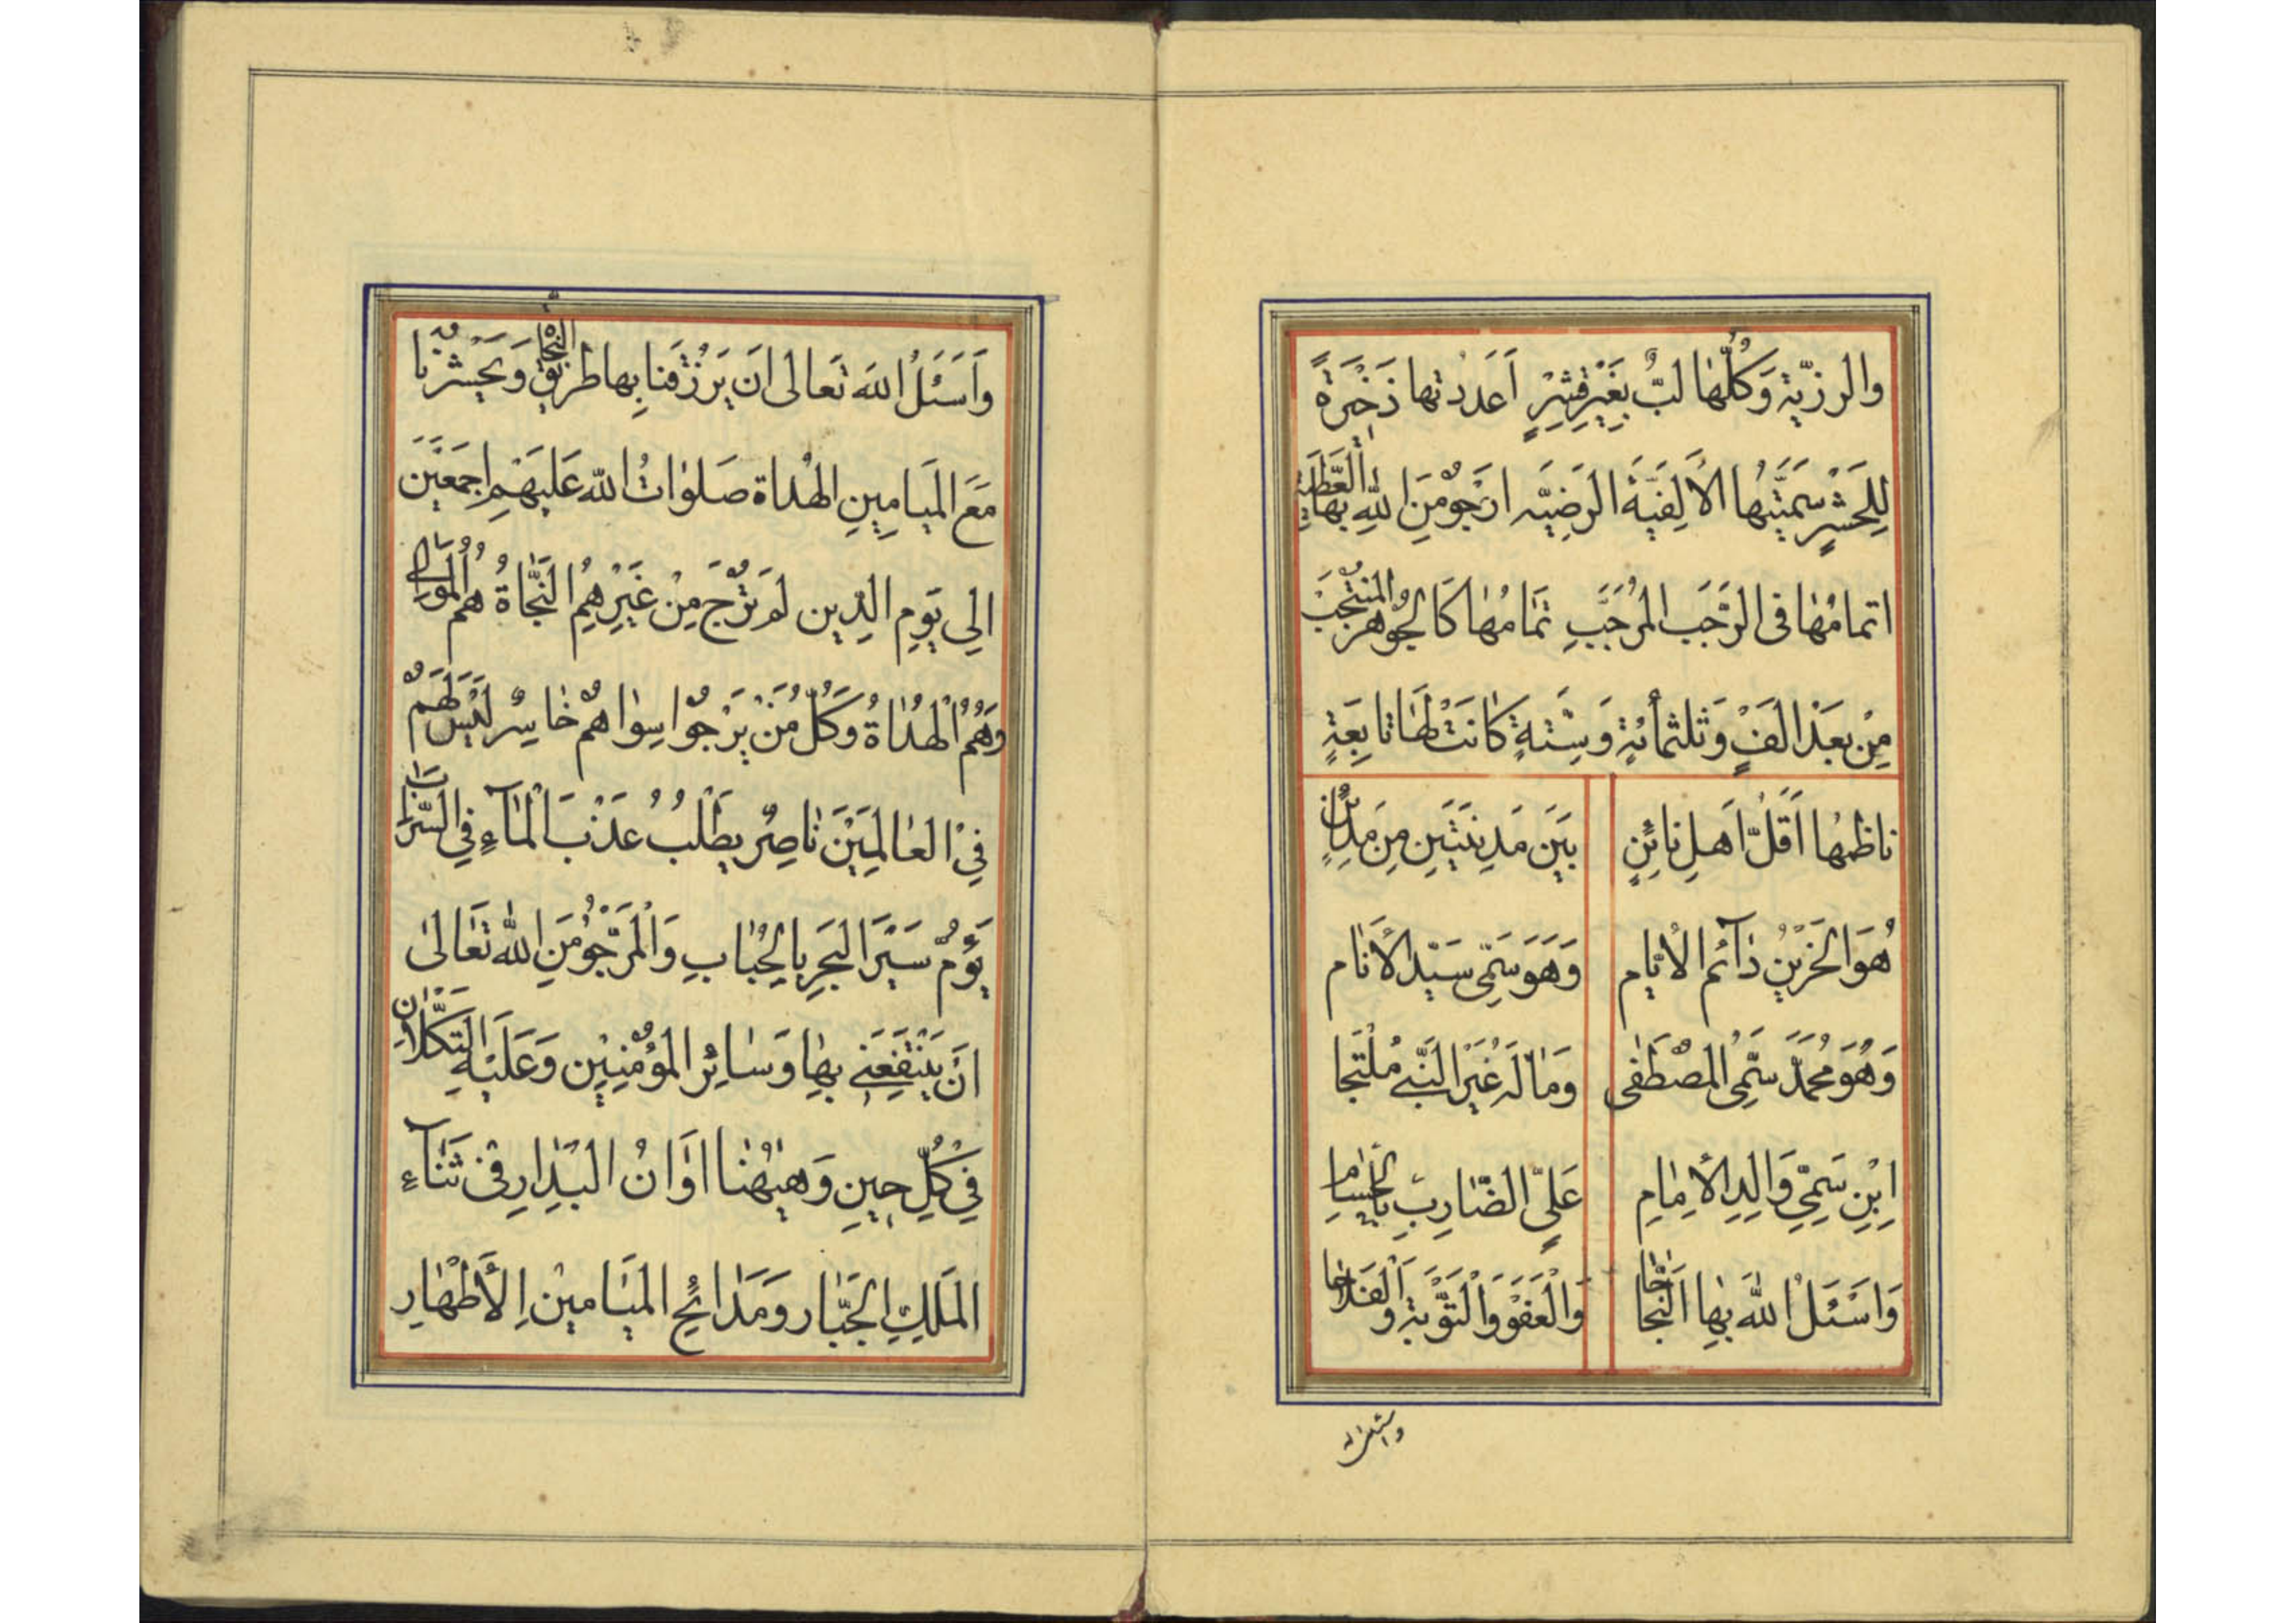 والرزیّةِ وَکُلُّهٰا لبٌّ بِغَیْرِ قِشْرٍ اَعَدَدتها ذَخیٖرَةً
لِلْحَشْرِ سَمَّیْتُهَا الْاَلِفیَّةَ الرَضِیَّه ارَجُو مِنَ اللّٰهِ بِهَا الْعَطِیَّة
اتمامُهٰا فی الرَّجَب المُرَجَّبِ تَمٰامُهٰا کَالْجَوْهَر المُنْتَجَبْ
مِنْ بَعَدِ الْفٍ وَثلٰثمأئةٍ وَسِتَّةٍ کٰانَتْ لَهٰا تٰابِعَةٍ
ناظمُها اَقَلُّ اَهلِ نائنٍ بَینَ مَدِینَتَینِ مِنَ مَدٰائِنٍ
هُوَ الحَزینُ دٰآئم الاَیّام وَهوَ سَمِّی سَیّد الاَنام
وَهُوَ مُحَمَّدٌ سَمِّیُ المُصْطَفی وَمٰا لَه غَیْرَ النَّبی مُلْتَجا
اِبْنِ سَمِّی وَالِدِ الاِمٰامِ عَلیٍّ الضّٰارِبِ بِالْحُسٰامِ
وَاَسْئَلُ اللّٰهَ بِهٰا النَجٰاحٰا وَالْعَفْوَ وَالْتَوْبَةَ وَالْفَلاحٰا
واسئل الله
وَاَسْئَلُ اللهَ تَعالی اَن یَرْزُقَنا بِها طَرِیْقَ النَّجاة وَیَحْشُرْنا
مَعَ المَیامِینِ الهُداة صَلَوٰاتُ اللّٰه عَلَیهِمْ اجْمَعَیٖنَ
الی یَوِمِ الدِین لَمْ تُرْجَ مِنْ غَیْرِهِمُ النَّجٰاةُ هُمُ الْمَوٰالی
وَهُمُ الْهُدٰاةُ وَکُلُّ مَنْ یَرْجُوا سِوٰاهُمْ خٰاسِرُ لَیْسَ لَهُمْ
فی الْعٰالَمِیْنَ نٰاصِرُ یَطْلُبُ عَذْبَ الْمٰآءِ فِی السَّرٰابِ
یَؤُمُّ سَیْرَ الْبَحِرِ بِالْحُبٰابِ وَالْمَرْجُوُ مِنَ اللّٰه تَعٰالیٰ
اَنْ یَنْتَفِعَنی بِهٰا وَسٰائِرَ المُؤْمِنِیْنَ وَعَلَیْهِ التَکَّلاٰنِ
فی کُلِّ حِینِ وَهٰیهُنٰا اوٰانُ البِدٰارِ فی ثَنٰآءِ
المَلَکِ الجَبّٰار وَمَدٰائحِ المَیٰامینَ الاَطْهٰارِ